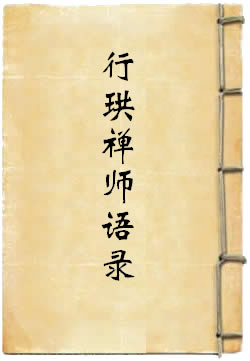 行珙禅师语录